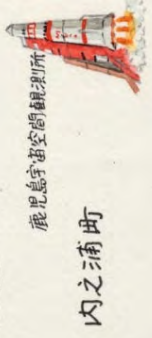 鹿児島宇宙空間観測所
内之浦町